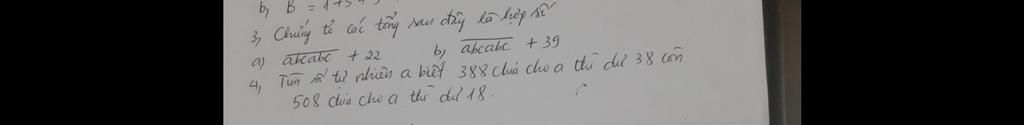 b, B = 1+5+
3, Chứng tỏ các tổng sau đây là hợp số
a) abcabc + 22 b, abcabc + 39
4, Tìm số tự nhiên a biết 388 chia cho a thì dư 38 còn
508 chia cho a thì dư 18.